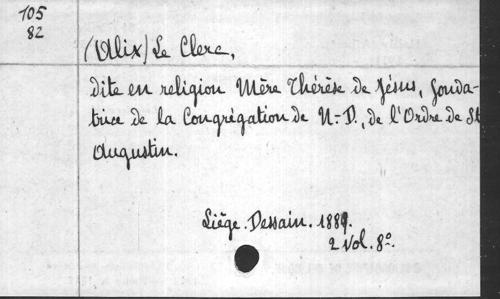 105
82
(Alix) Le Clerc,
dite en religion Mère Thérèse de Jésus, fonda-
trice de la Congrégation de N.-D., de l'Ordre de St
Augustin.
Liége. Dessain. 1889.
2 vol. 8º.